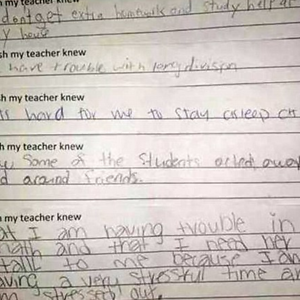 h my teacher knew
don't get extra homework and study help at
y house
sh my teacher knew
have trouble with long divison
sh my teacher knew
hard for me to stay asleep
sh my teacher knew
Some of the Students acted
d around friends.
h my teacher knew
at I am having trouble in
math and that I need her
talk to me because I am
aving a very stressful time
m stressed out.